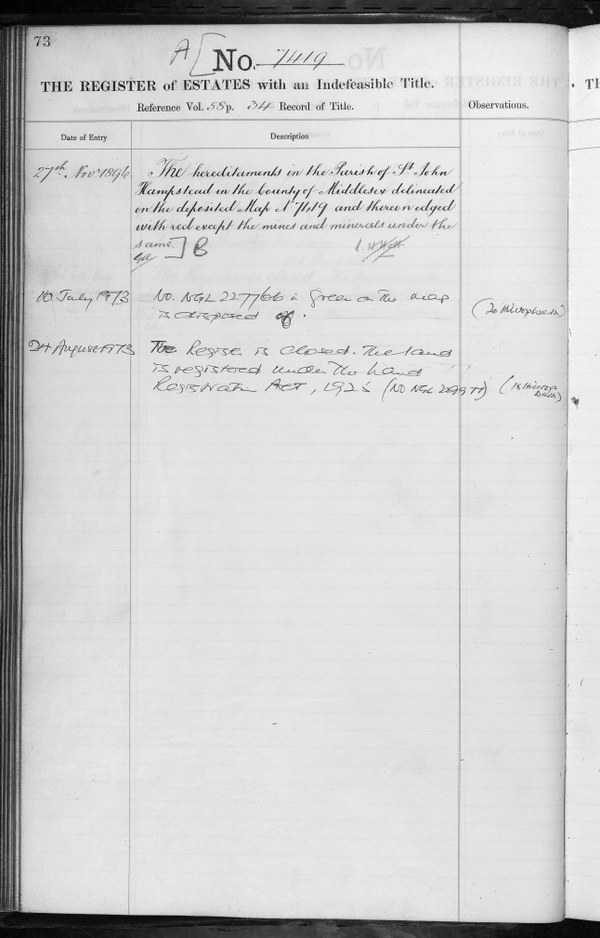 73
A [ No. 7419
THE REGISTER of ESTATES with an Indefeasible Title.
Reference Vol. 58 p. 34 Record of Title.
Observations.
Date of Entry
Description
27th Novr 1896
The hereditaments in the Parish of St. John
Hampstead in the County of Middlesex delineated
on the deposited Map No. 7419 and thereon edged
with red except the mines and minerals under the
same. ] B
10 July 1973
No. NGL 227766 in green on the map
is disposed of.
24 August 1973
The Register is closed. The land
is registered under the Land
Registration Act, 1925 (No NGL